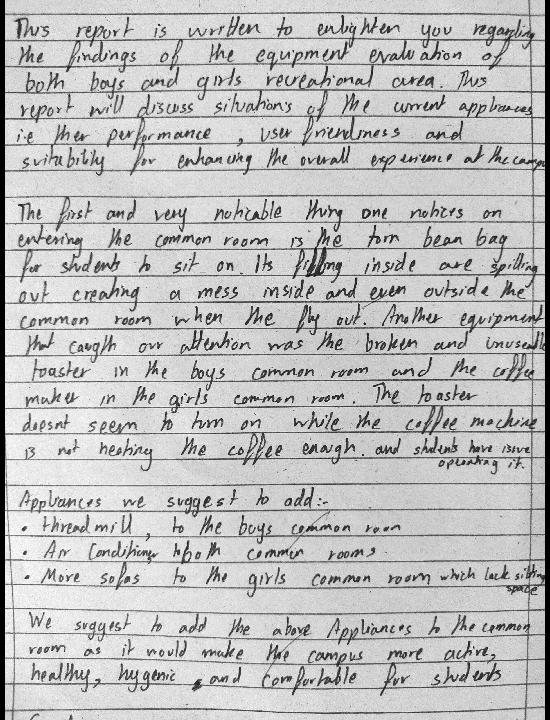 This report is written to enlighten you regarding
the findings of the equipment evaluation of
both boys and girls recreational area. This
report will discuss situations of the current appliances
i.e ther performance , user friendliness and
suitability for enhancing the overall experience at the campus
The first and very noticable thing one notices on
entering the common room is the torn bean bag
for students to sit on. Its filling inside are spilling
out creating a mess inside and even outside the
common room when the fly out. Another equipment
that caugth our attention was the broken and unuseable
toaster in the boys common room and the coffee
maker in the girls common room. The toaster
doesnt seem to turn on while the coffee machine
is not heating the coffee enough. and students have issue
operating it.
Appliances we suggest to add:-
• threadmill, to the boys common room
• Air Conditioner to both common rooms.
• More sofas to the girls common room which lack sitting
space
We suggest to add the above Appliances to the common
room as it would make the campus more active,
healthy, hygenic and comfortable for students